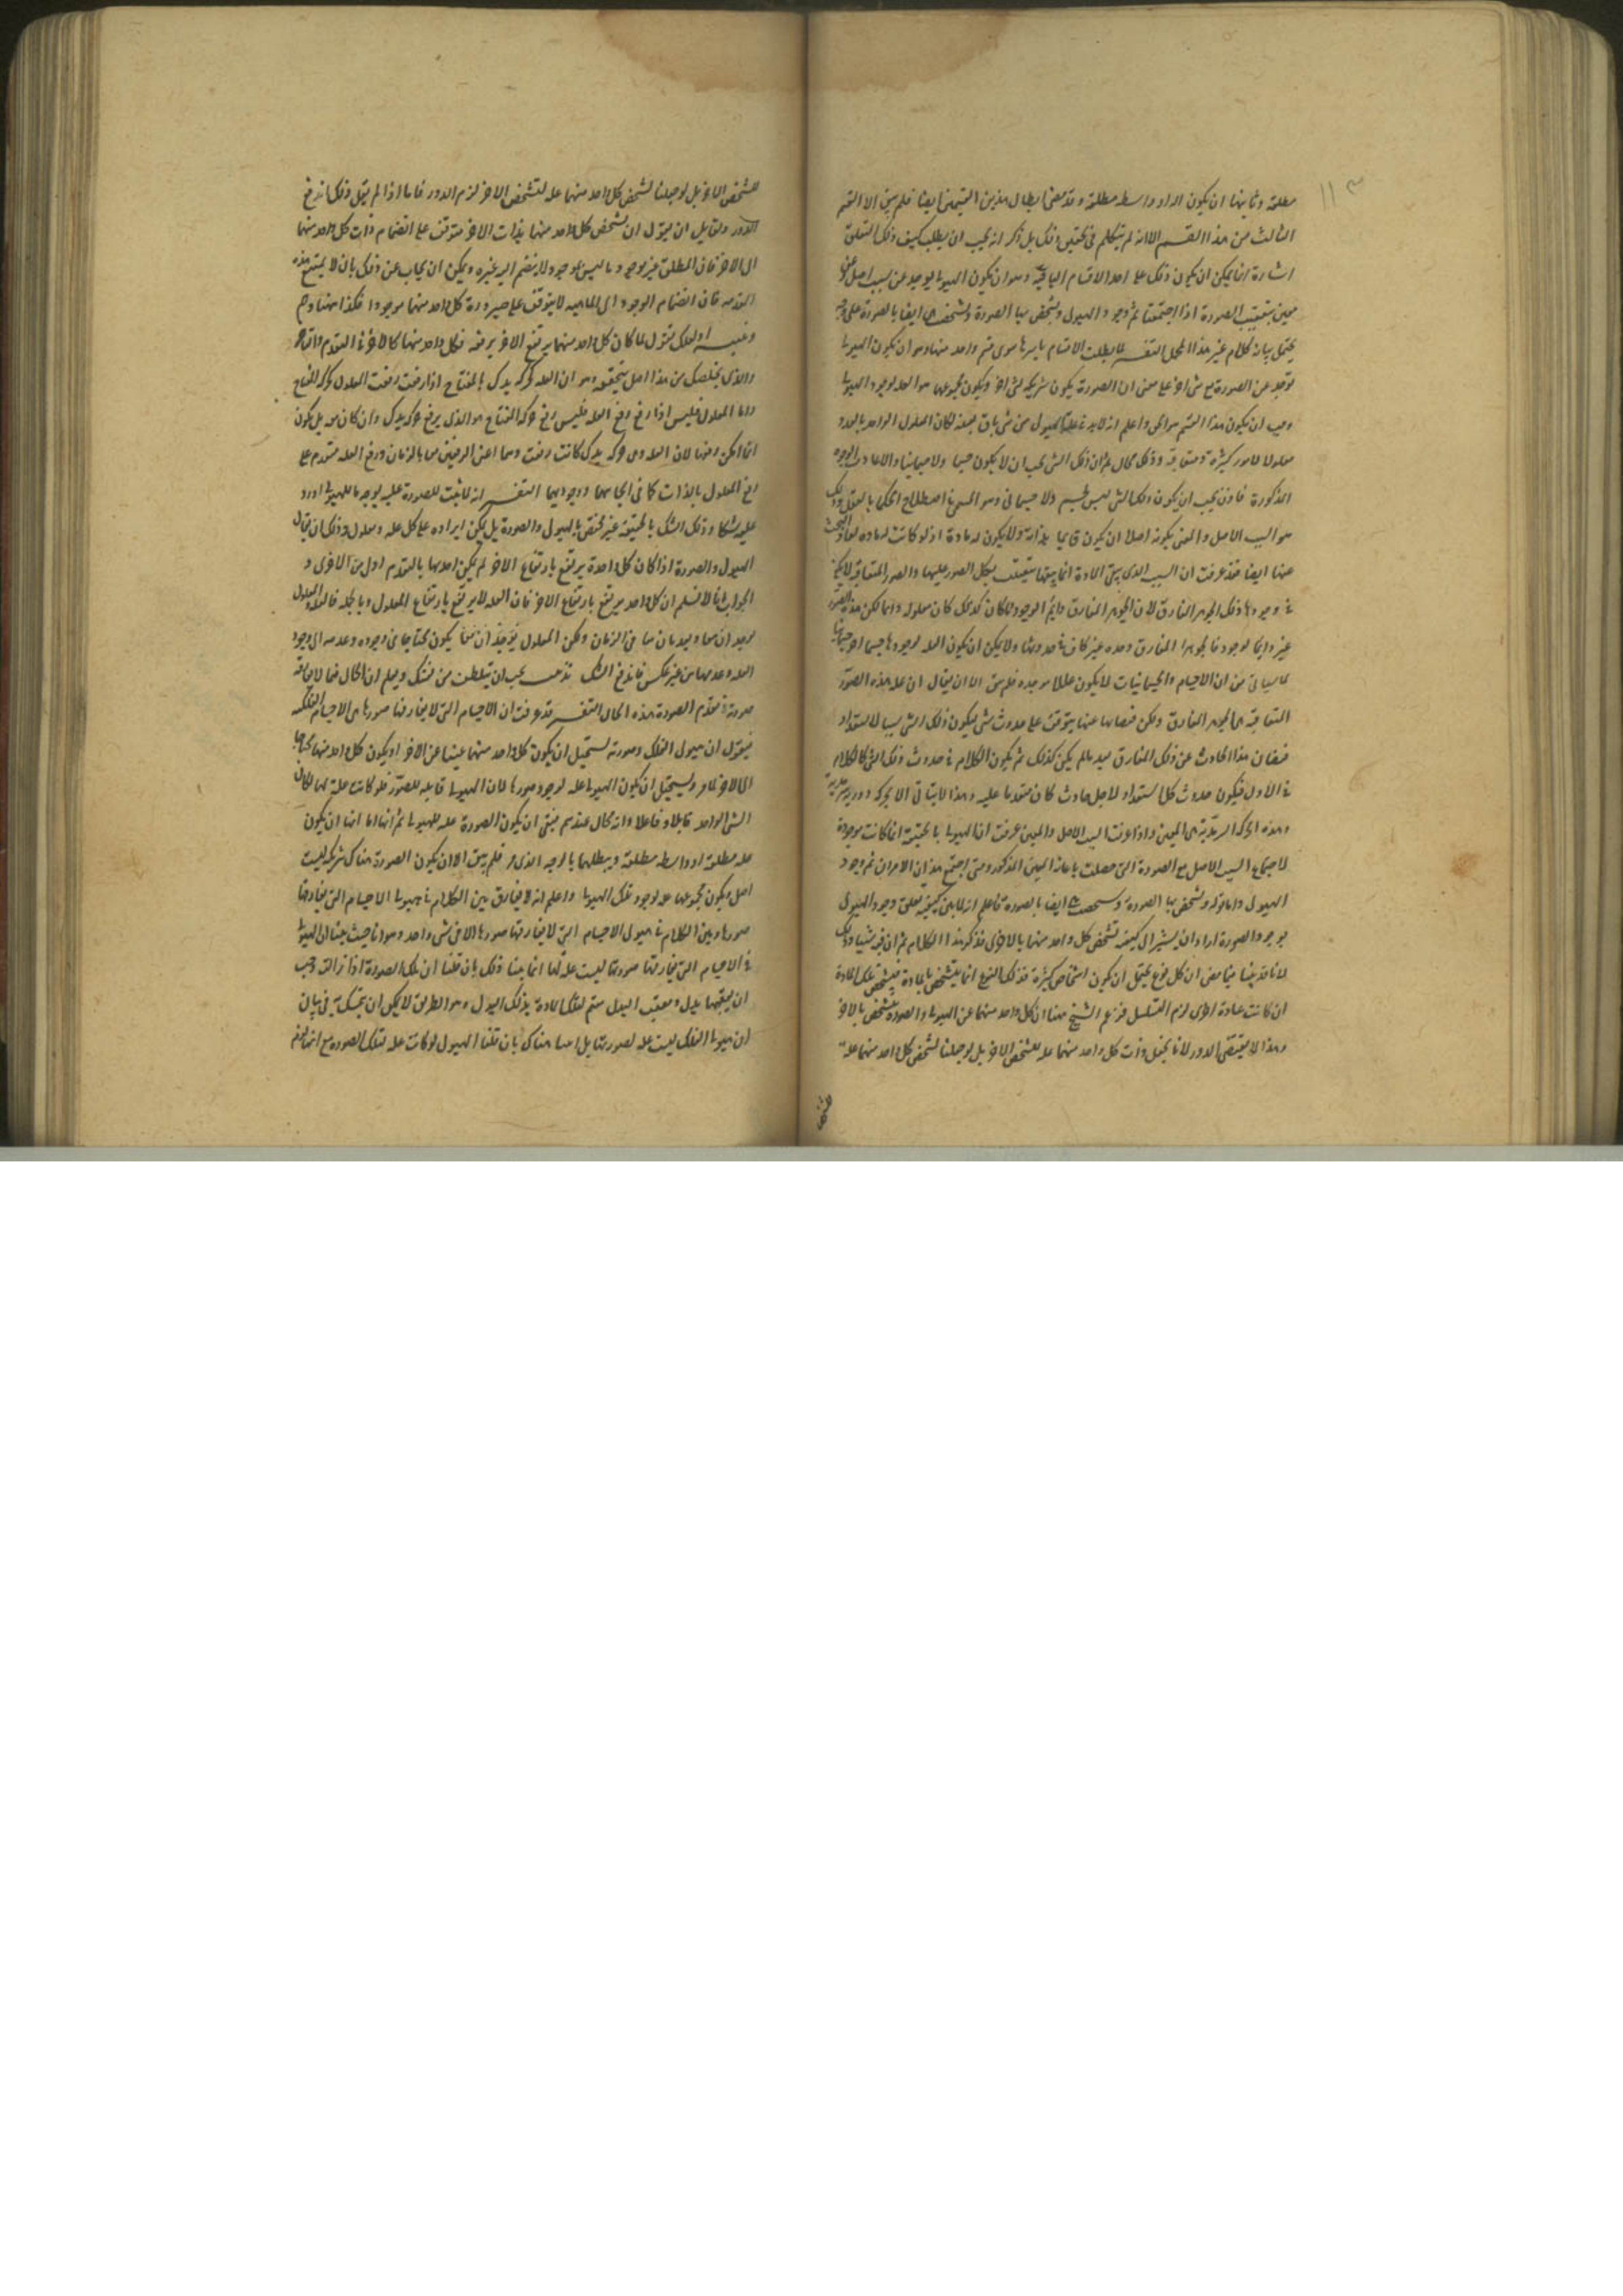 ١١٣
مطلقة وثانيها ان يكون اداة او واسطة مطلقة وقد مضى ابطال هذين القسمين ايضا فلم يبق الا القسم
الثالث من هذا القسم الا انه لم يتكلم في تحقيق ذلك بل ذكر انه يجب ان يطلب كيف ذلك التعلق
اشارة انما يمكن ان يكون ذلك على احد الاقسام الباقية وهو ان يكون الهيولى يوجد عن سبب اصل وعن
معين بتعقيب الصورة اذا اجتمعتا تم وجود الهيولى وتشخص بها الصورة وتشخصت هي ايضا بالصورة على وجه
يحتمل بيانه كلام غير هذا المجمل التفسير لما بطلت الاقسام باسرها سوى قسم واحد منها وهو ان يكون الهيولى
توجد عن الصورة مع شئ اخر على معنى ان الصورة يكون شريكة لشئ اخر ويكون مجموعهما هو العلة لوجود الهيولى
وجب ان يكون هذا القسم هو الحق واعلم انه لابد في علة الهيولى من شئ باق بعينه لكان المعلول الواحد بالعدد
معلولا لامور كثيرة متعاقبة وذلك محال ثم ان ذلك الشئ يجب ان لا يكون جسما ولا جسمانيا والا عادت الوجوه
المذكورة فاذن يجب ان يكون ذلك الشئ ليس بجسم ولا جسماني وهو المسمى في اصطلاح الحكما بالعقل وذلك
هو السبب الاصل والمعنى بكونه اصلا ان يكون قايما بذاته ولا يكون له مادة اذ لو كانت له مادة لعاد البحث
عنها ايضا فقد عرفت ان السبب الذي يبقى المادة انما يبقيها بتعقيب بدل الصور عليها والصور المتعاقبة لا يكفي
في وجودها ذلك الجوهر المفارق لان الجوهر المفارق دايم الوجود فلو كان كذلك كان معلوله دايما لكن هذه الصور
غير دايما لوجود فالجوهر المفارق وحده غير كاف في حدوثها ولا يمكن ان يكون العلة لوجودها جسما او جسمانيا
لما سياتي من ان الاجسام والجسمانيات لا يكون عللا موجدة فلم يبق الا ان يقال ان علة هذه الصور
المتعاقبة هي الجوهر المفارق ولكن فيضانها عنها يتوقف على حدوث شئ فيكون ذلك الشئ سببا لاستعداد
فيضان هذا الحادث عن ذلك المفارق بعد ما لم يكن كذلك ثم يكون الكلام في حدوث ذلك الشئ كالكلام
في الاول فيكون حدوث كل استعداد لاجل حادث كان متقدما عليه وهذا لا يتاتى الا بحركة دورية سرمدية
وهذه الحركة السرمدية هي المعين واذا عرفت السبب الاصل والمعين عرفت ان الهيولى بالحقيقة انما كانت موجودة
لاجتماع السبب الاصل مع الصورة التي حصلت باعانة المعين المذكور ومتى اجتمع هذان الامران تم وجود
الهيولى واما قوله وتشخص بها الصورة وتشخصت هي ايضا بالصورة فاعلم انه لما بين كيفية تعلق وجود الهيولى
بوجود الصورة اراد ان يشير الى كيفية تشخص كل واحد منهما بالاخرى فذكر هذا الكلام ثم ان فيه شيئا وذلك
لانا قد بينا فيما مضى ان كل نوع يحتمل ان يكون اشخاص كثيرة فذلك النوع انما يتشخص بالمادة فتشخص تلك المادة
ان كانت بمادة اخرى لزم التسلسل فزعم الشيخ ههنا ان كل واحد منهما عن الهيولى والصورة يتشخص بالاخر
وهذا لا يقتضي الدور لانا نجعل ذات كل واحد منهما علة لتشخص الاخر بل لو جعلنا تشخص كل واحد منهما علة
لتشخص
لتشخص الاخر بل لو جعلنا تشخص كل واحد منهما علة لتشخص الاخر لزم الدور فاما اذا لم نقل ذلك اندفع
الدور ولقايل ان يقول ان تشخص كل واحد منهما بذات الاخر متوقف على انضمام ذات كل واحد منهما
الى الاخر فان المطلق غير موجود وما ليس بموجود لا ينضم اليه غيره ويمكن ان يجاب عن ذلك بان لا يمتنع هذه
المقدمة فان انضمام الوجود الى الماهية لا يتوقف على صيرورة كل واحد منهما موجودا فكذا ههنا وهم
وتنبيه او لعلك تقول لما كان كل واحد منهما يرتفع الاخر برفعه فكل واحد منهما كالاخر في التقدم والتاخر
والذي يخلصك من هذا اصل تتحققه وهو ان العلة كحركة يدك بالمفتاح اذا رفعت رفعت المعلول كحركة المفتاح
واما المعلول فليس اذا رفع رفع العلة فليس رفع حركة المفتاح هو الذي يرفع حركة يدك وان كان معه بل يكون
انما امكن رفعها لان العلة وهي حركة يدك كانت رفعت وهما اعنى الرفعين معا بالزمان ورفع العلة متقدم على
رفع المعلول بالذات كما في ايجابيهما ووجوديهما التفسير انه لما ثبت للصورة علية بوجه ما للهيولى اورد
عليه شكا وذلك الشك بالحقيقة غير مختص بالهيولى والصورة بل يمكن ايراده على كل علة ومعلول وذلك ان يقال
الهيولى والصورة اذا كان كل واحدة يرتفع بارتفاع الاخر لم يكن احدهما بالتقدم اولى من الاخرى و
الجواب انا لا نسلم ان كل واحد يرتفع بارتفاع الاخر فان العلة لا يرتفع بارتفاع المعلول وبالجملة فالعلة والمعلول
يوجدان معا ويعدمان معا في الزمان ولكن المعلول يكون محتاجا في وجوده وعدمه الى وجود
العلة وعدمها من غير عكس فاندفع الشك تذنيب يجب ان يتلطف من نفسك ويعلم ان الحال فيما لا يفارقه
صورته في تقدم الصورة هذه الحال التفسير قد عرفت ان الاجسام التي لا يفارقها صورها هي الاجسام الفلكية
فنقول ان هيولى الفلك وصورته يستحيل ان يكون كل واحد منهما غنيا عن الاخر او يكون كل واحد منهما محتاجا
الى الاخر لما مر ويستحيل ان يكون الهيولى علة لوجود صورها لان الهيولى قابلة للصور فلو كانت علة لها لكان
الشئ الواحد قابلا وفاعلا وانه محال عندهم فبقى ان يكون الصورة علة للهيولى ثم انها اما انها ان يكون
علة مطلقة او واسطة مطلقة ويبطلهما بالوجه الذي مر فلم يبق الا ان يكون الصورة هناك شريكة لسبب
اصل ويكون مجموعهما علة لوجود تلك الهيولى واعلم انه لا يفارق بين الكلام في هيولى الاجسام التي يفارقها
صورها وبين الكلام في هيولى الاجسام التي لا يفارقها صورها الا في شئ واحد وهو انا حيث بينا ان الهيولى
في الاجسام التي يفارقها صورتها ليست علة لها انما بينا ذلك بان قلنا ان تلك الصورة اذا زالت وجب
ان يعقبها بدل ومعقب البدل مقيم لتلك المادة بذلك البدل وهو الطريق لا يمكن ان يتمسك به في بيان
ان هيولى الفلك ليست علة لصورتها بل انما هناك بان قلنا الهيولى لو كانت علة لتلك الصورة مع انها